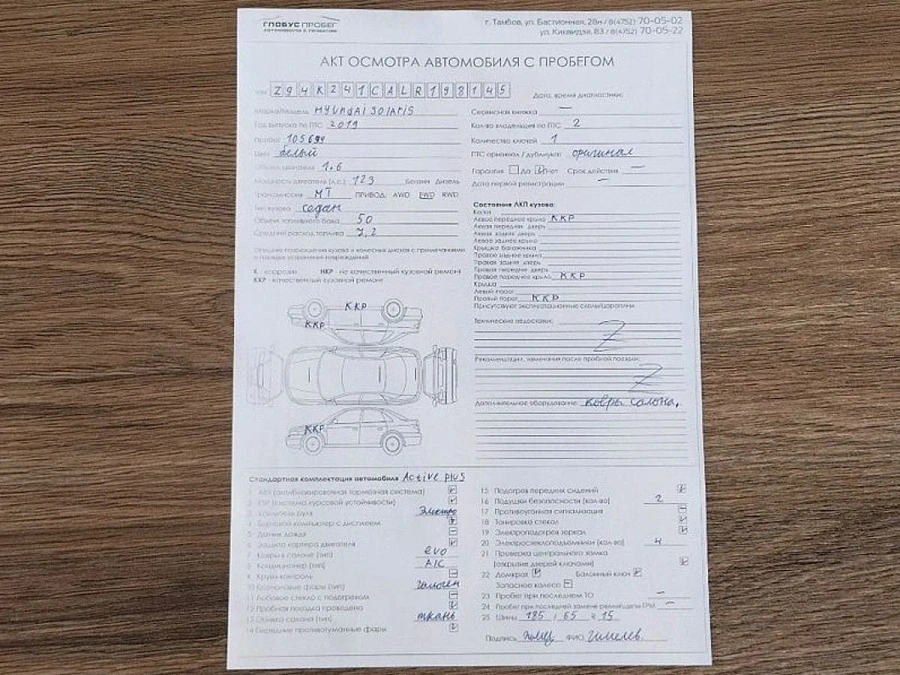 ГЛОБУС ПРОБЕГ
АВТОМОБИЛИ С ПРОБЕГОМ
г. Тамбов, ул. Бастионная, 28н / 8(4752) 70-05-02
ул. Киквидзе, 83 / 8(4752) 70-05-22
АКТ ОСМОТРА АВТОМОБИЛЯ С ПРОБЕГОМ
Z94K241CALR198145
Дата, время диагностики:
Марка/Модель HYUNDAI SOLARIS
Год выпуска по ПТС 2019
Пробег
Цвет белый
Объем двигателя 1.6
Мощность двигателя (л.с.) 123 Бензин Дизель
Трансмиссия МТ ПРИВОД: AWD FWD RWD
Тип кузова седан
Объем топливного бака 50
Средний расход топлива 7,2
Сервисная книжка —
Кол-во владельцев по ПТС 2
Количество ключей 1
ПТС оригинал / дубликат оригинал
Гарантия Да Нет Срок действия —
Дата первой регистрации —
К - коррозия НКР - не качественный кузовной ремонт
ККР - качественный кузовной ремонт
ККР
ККР
ККР
Состояние ЛКП кузова:
Капот
Левое переднее крыло ККР
Левая передняя дверь
Левая задняя дверь
Левое заднее крыло
Крышка багажника
Правое заднее крыло
Правая задняя дверь
Правая передняя дверь
Правое переднее крыло ККР
Крыша
Левый порог
Правый порог ККР
Присутствуют эксплуатационные сколы/царапины
Технические недостатки: Z
Рекомендации, замечания после пробной поездки: Z
Дополнительное оборудование: ковры салона.
Стандартная комплектация автомобиля Active plus
1 ABS (антиблокировочная тормозная система)
2 ESP (система курсовой устойчивости)
3 Усилитель руля Электро
4 Бортовой компьютер с дисплеем
5 Датчик дождя
6 Защита картера двигателя
7 Ковры в салоне (тип) evo
8 Кондиционер (тип) A/C
9 Круиз-контроль
10 Головные фары (тип) галоген
11 Лобовое стекло с подогревом
12 Пробная поездка проведена
13 Обивка салона (тип) ткань
14 Передние противотуманные фары
15 Подогрев передних сидений
16 Подушки безопасности (кол-во) 2
17 Противоугонная сигнализация
18 Тонировка стекол
19 Электроподогрев зеркал
20 Электростеклоподъемники (кол-во) 4
21 Проверка центрального замка
(открытие дверей ключами)
22 Домкрат Балонный ключ
Запасное колесо
23 Пробег при последнем ТО —
24 Пробег при последней замене ремня/цепи ГРМ —
25 Шины 185 / 65 R 15
Подпись ФИО